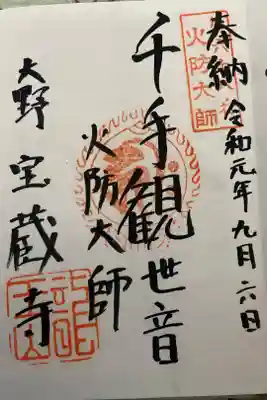 奉納 令和元年九月六日
千手観世音
火防大師
大野 宝蔵寺
火防大師